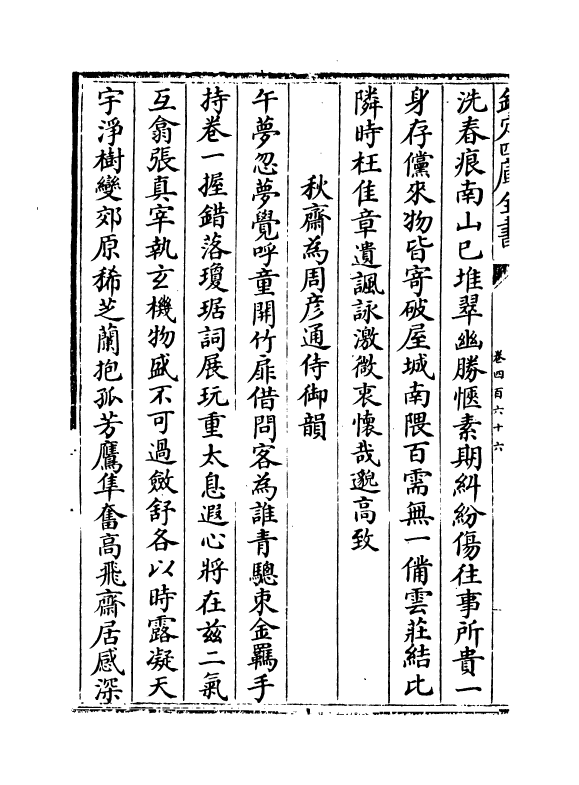 欽定四庫全書
卷四百六十六
洗春痕南山已堆翠幽勝愜素期糾紛傷往事所貴一
身存儻來物皆寄破屋城南隈百需無一備雲莊結比
隣時枉佳章遺諷詠激微衷懷哉邈高致
秋齋為周彦通侍御韻
午夢忽夢覺呼童開竹扉借問客為誰青驄朿金羈手
持卷一握錯落瓊琚詞展玩重太息遐心將在兹二氣
互翕張真宰執玄機物盛不可過斂舒各以時露凝天
宇淨樹變郊原稀芝蘭抱孤芳鷹隼奮高飛齋居感深